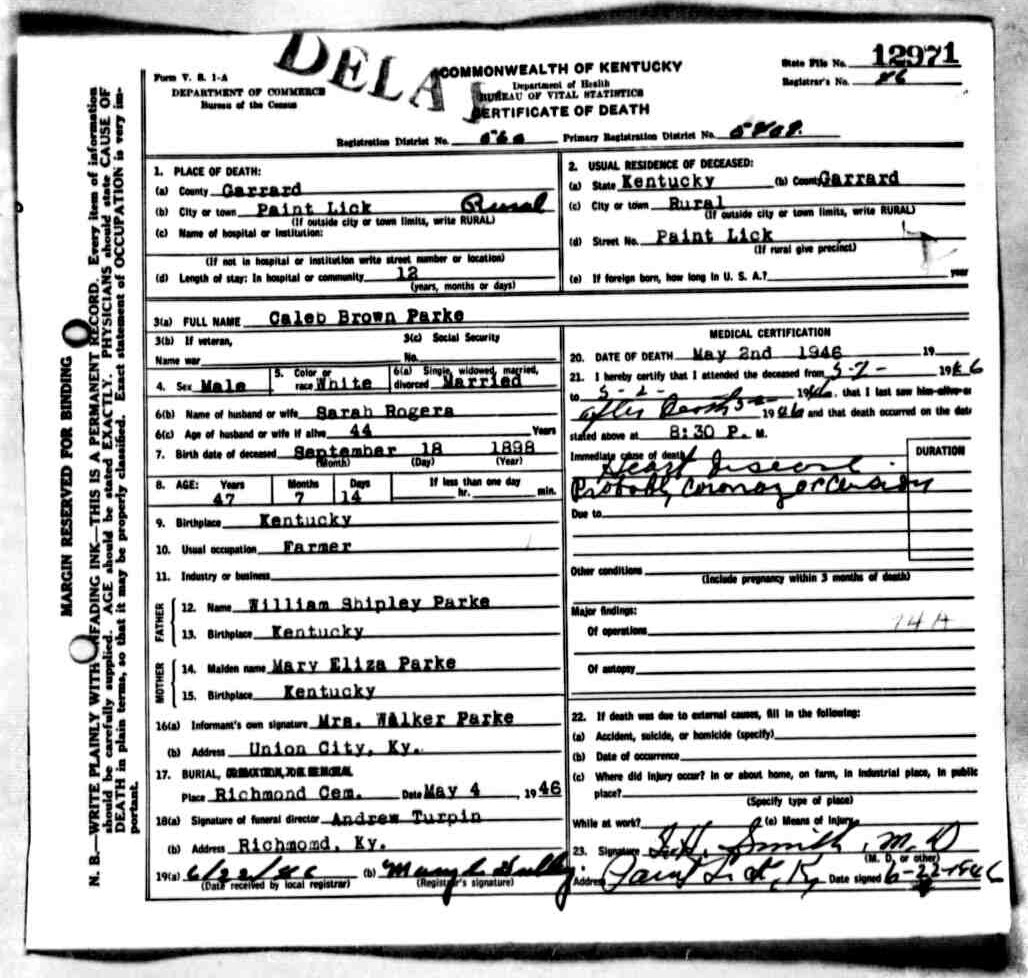 DELA
Form V. S. 1-A
DEPARTMENT OF COMMERCE
Bureau of the Census
COMMONWEALTH OF KENTUCKY
Department of Health
BUREAU OF VITAL STATISTICS
CERTIFICATE OF DEATH
State File No. 12971
Registrar's No. 86
Registration District No. 560 Primary Registration District No.
1. PLACE OF DEATH:
(a) County Garrard
(b) City or town Paint Lick Rural
(If outside city or town limits, write RURAL)
(c) Name of hospital or institution:
(If not in hospital or institution write street number or location)
(d) Length of stay: In hospital or community 12
(years, months or days)
2. USUAL RESIDENCE OF DECEASED:
(a) State Kentucky (b) County Garrard
(c) City or town Rural
(If outside city or town limits, write RURAL)
(d) Street No. Paint Lick
(If rural give precinct)
(e) If foreign born, how long in U. S. A.? year
3(a) FULL NAME Caleb Brown Parke
3(b) If veteran,
Name war
3(c) Social Security
No.
4. Sex Male
5. Color or
race White
6(a) Single, widowed, married,
divorced Married
6(b) Name of husband or wife Sarah Rogers
6(c) Age of husband or wife if alive 44 Years
7. Birth date of deceased September 18 1898
(Month) (Day) (Year)
8. AGE: Years Months Days If less than one day
47 7 14 hr. min.
9. Birthplace Kentucky
10. Usual occupation Farmer
11. Industry or business
FATHER
12. Name William Shipley Parke
13. Birthplace Kentucky
MOTHER
14. Maiden name Mary Eliza Parke
15. Birthplace Kentucky
16(a) Informant's own signature Mrs. Walker Parke
(b) Address Union City, Ky.
17. BURIAL, CREMATION, OR REMOVAL
Place Richmond Cem. Date May 4, 1946
18(a) Signature of funeral director Andrew Turpin
(b) Address Richmond, Ky.
19(a) 6/22/46 (b)
(Date received by local registrar) (Registrar's signature)
MEDICAL CERTIFICATION
20. DATE OF DEATH May 2nd 1946 19
21. I hereby certify that I attended the deceased from 5-2- 1946
to 5-2- 1946. that I last saw him alive or
after Death 5-2 1946 and that death occurred on the date
stated above at 8:30 P. M.
Immediate cause of death
DURATION
Heart Disease
Probably Coronary occlusion
Due to
Other conditions
(Include pregnancy within 3 months of death)
Major findings:
Of operations
94A
Of autopsy
22. If death was due to external causes, fill in the following:
(a) Accident, suicide, or homicide (specify)
(b) Date of occurrence
(c) Where did injury occur? In or about home, on farm, in industrial place, in public
place?
(Specify type of place)
While at work? (e) Means of Injury
23. Signature Smith, M. D
(M. D. or other)
Address Paint Lick, Ky Date signed 6-22-1946
MARGIN RESERVED FOR BINDING
N. B.—WRITE PLAINLY WITH UNFADING INK—THIS IS A PERMANENT RECORD. Every item of information
should be carefully supplied. AGE should be stated EXACTLY. PHYSICIANS should state CAUSE OF
DEATH in plain terms, so that it may be properly classified. Exact statement of OCCUPATION is very im-
portant.